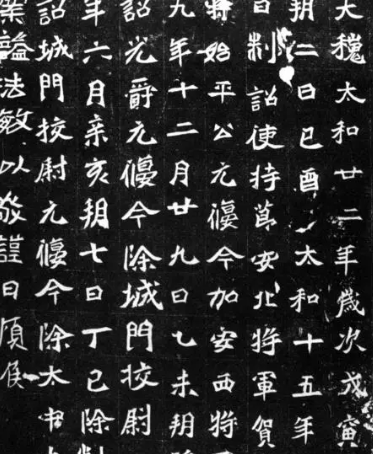 大魏太和廿二年歲次戊寅
朔二日己酉太和十五年
日制詔使持莭安北將軍賀
將始平公元偃今加安西將
九年十二月廿九日乙未朔
詔光爵元偃今除城門校尉
年六月辛亥朔七日丁巳除制
詔城門校尉元偃今除太中
案謚法敏以敬謹曰頃侯